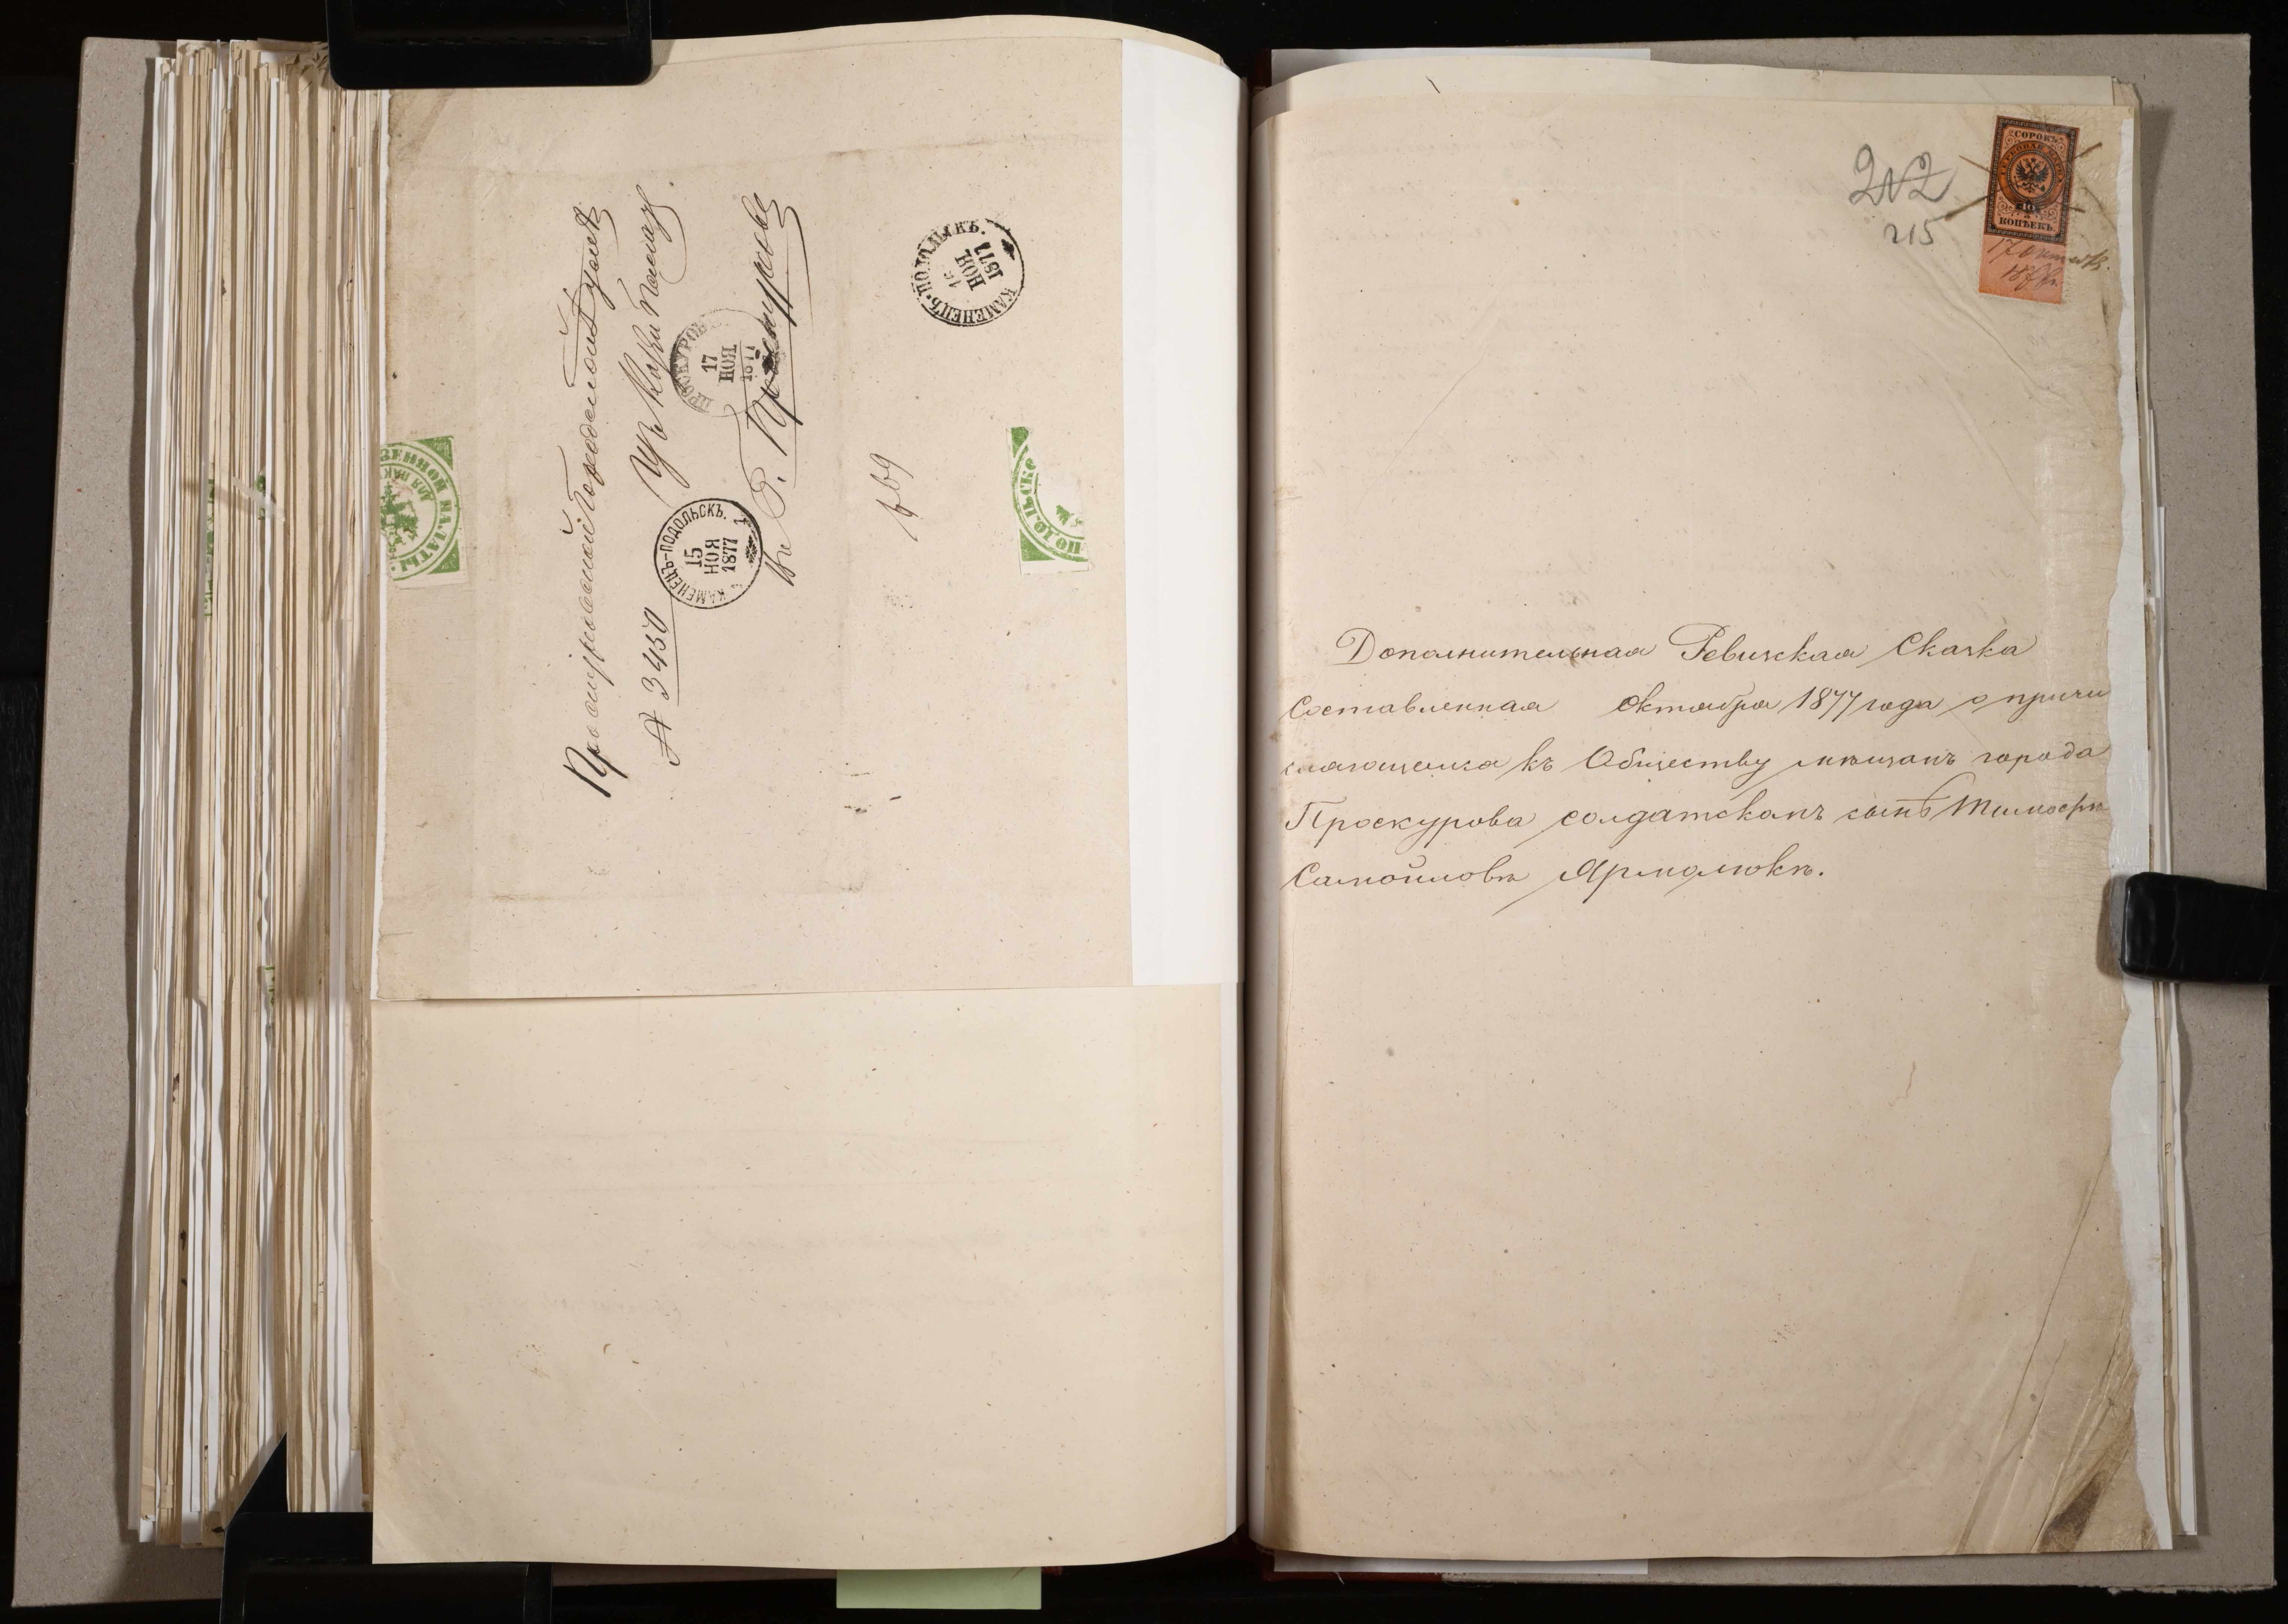 Проскуровской Городской Думѣ
Изъ Каз: Палаты
№ 3450
въ Г. Проскуровъ
КАМЕНЕЦЪ-ПОДОЛЬСКЪ.
15
НОЯ
1877
ПРОСКУРОВЪ
17
НОЯ
1877
КАМЕНЕЦЪ-ПОДОЛЬСКЪ.
НОЯ
1877
КАЗЕННОЙ ПАЛАТЫ
ПОДОЛЬСКО
212
215
СОРОКЪ
40
КОПѢЕКЪ
17 Октября
1877 г.
Дополнительная Ревизская Сказка
Составленная Октября 1877 года о причи
слающемся къ Обществу мѣщанъ города
Проскурова солдатскомъ сынѣ Тимофѣѣ
Самойловѣ Ярмолюкѣ.